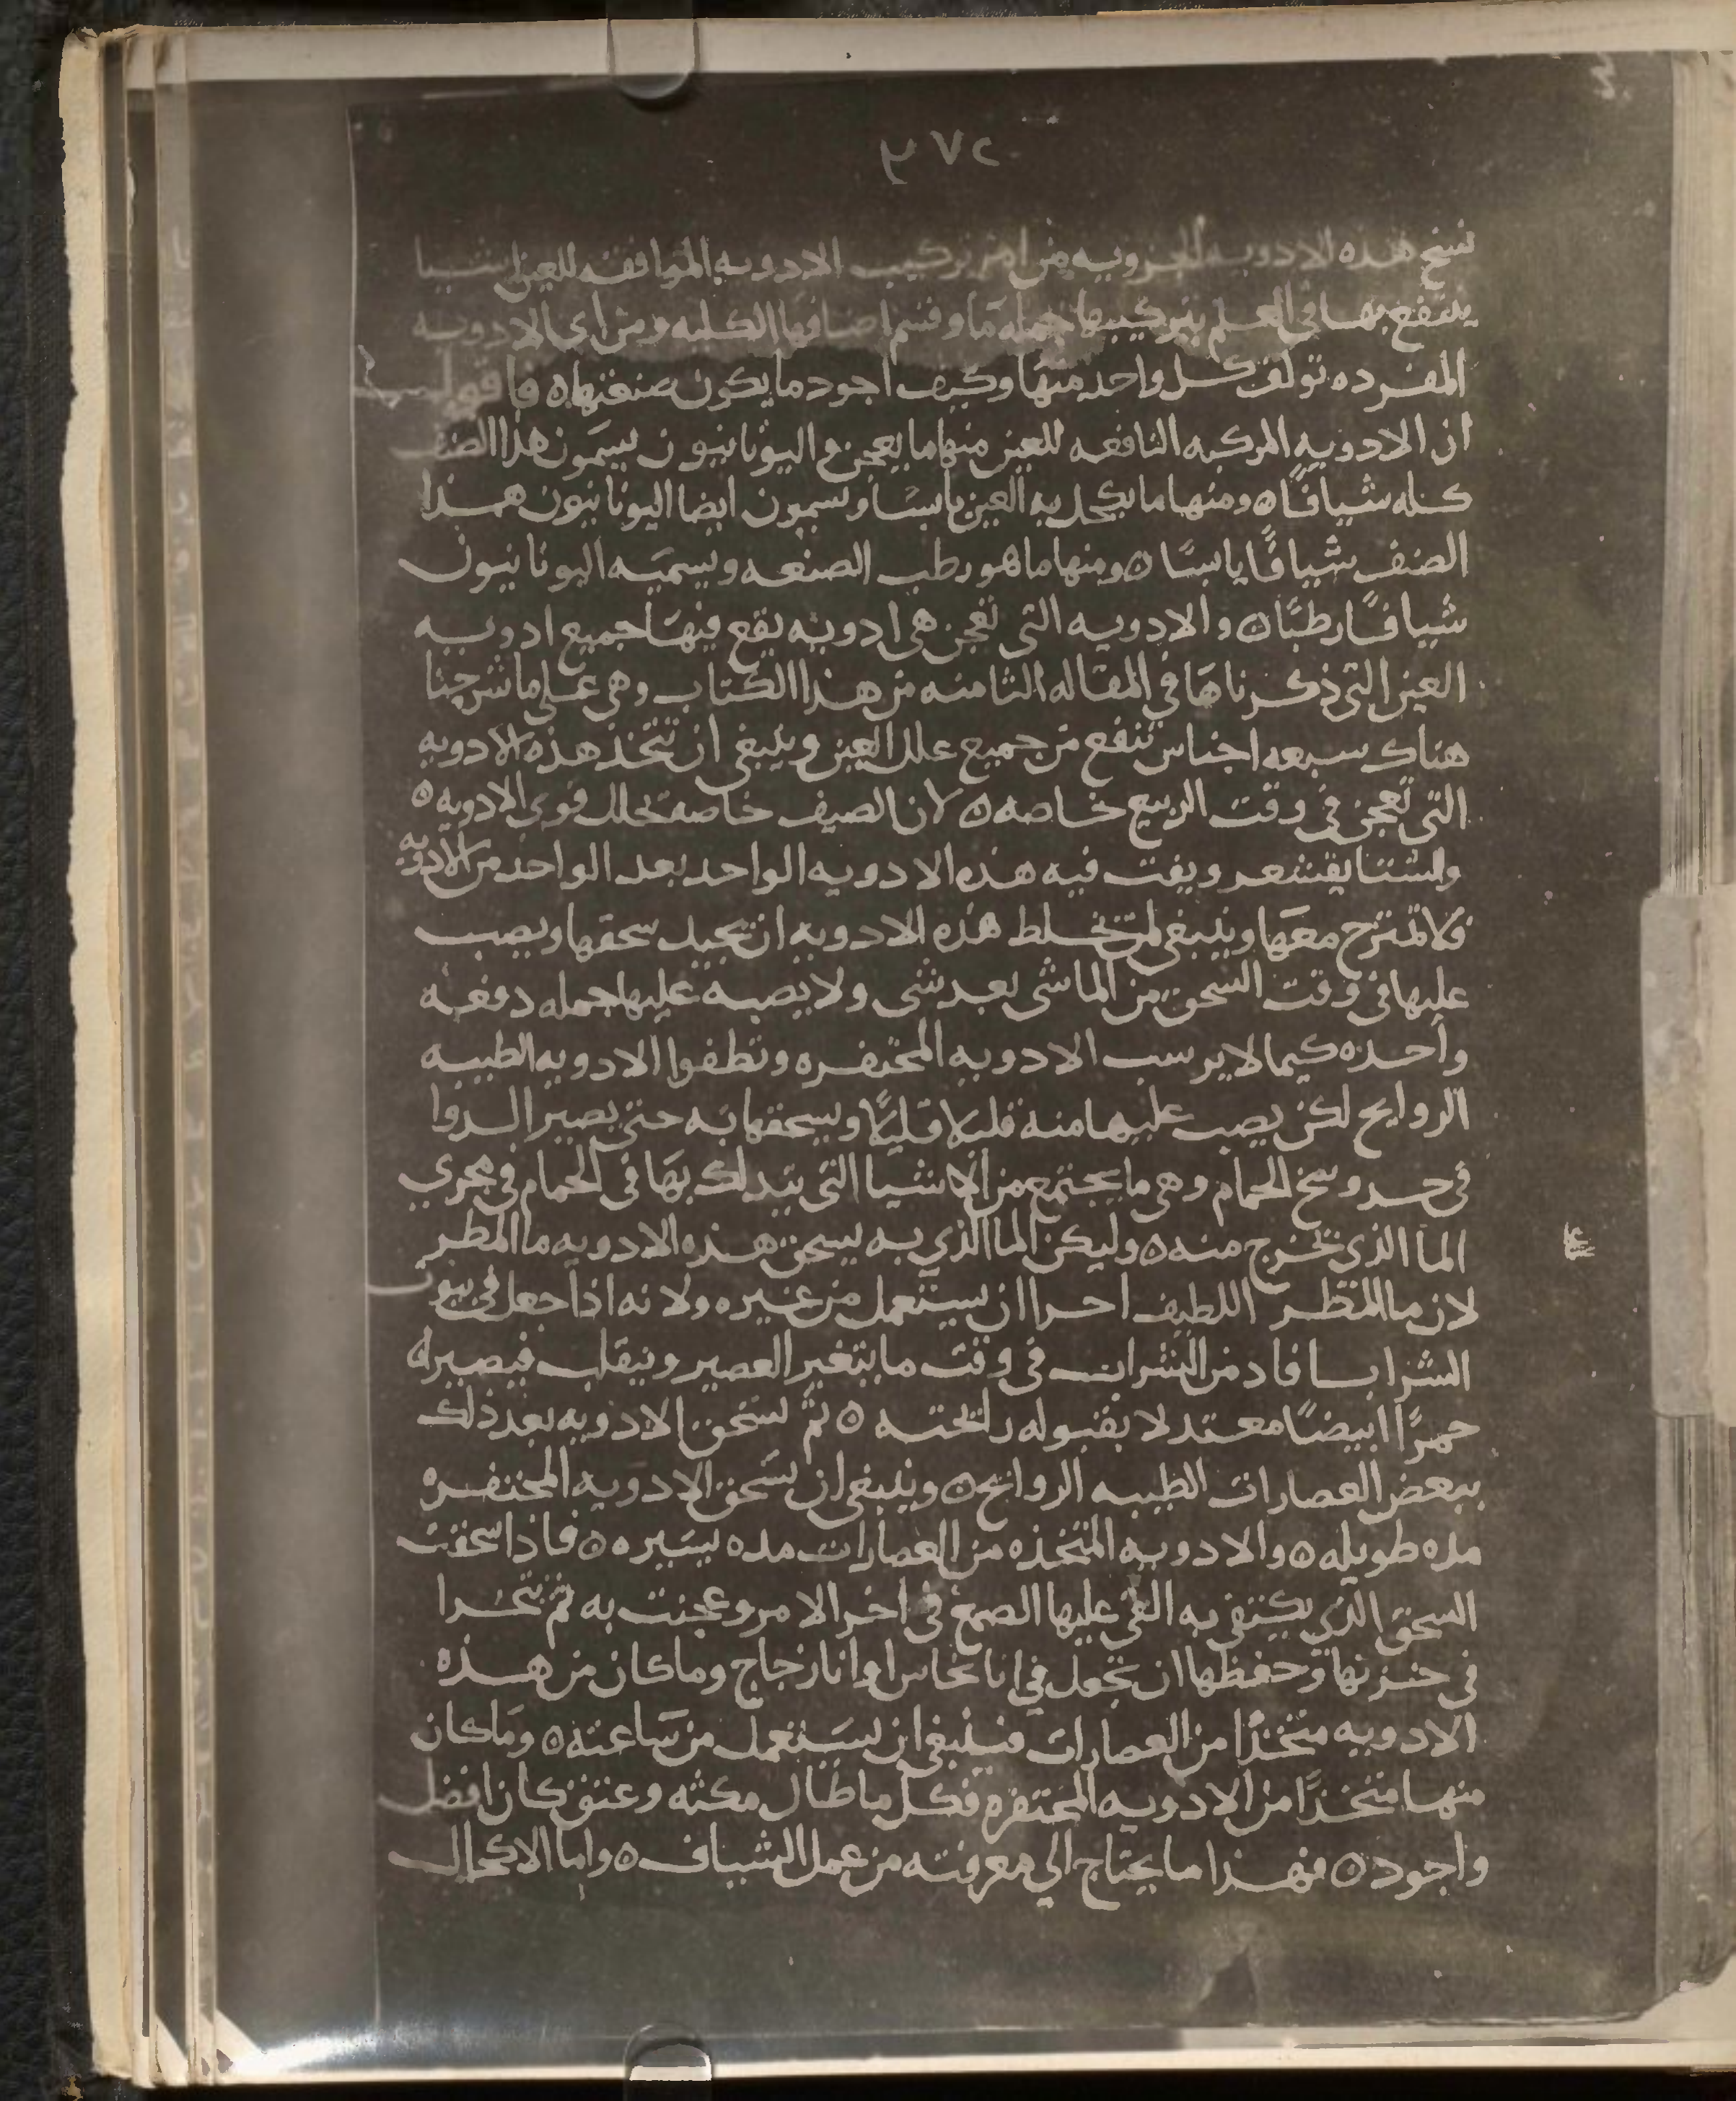 نسخ هذه الادويه الجزويه من امر تركيب الادويه الموافقه للعين اشيا
ينتفع بها في العلم بتركيبها جمله ما وقسم اصنافها الكليه ومن اي الادويه
المفرده تولف كل واحد منها وكيف اجود ما يكون صنعتها ٥ فاقول
ان الادويه المركبه النافعه للعين منها ما يعجن واليونانيون يسمون هذا الصنف
كله شيافًا ٥ ومنها ما يكحل به العين يابسًا ويسمون ايضا اليونانيون هذا
الصنف شيافًا يابسًا ٥ ومنها ما هو رطب الصنعه ويسميه اليونانيون
شيافًا رطبًا ٥ والادويه التي تعجن هي ادويه يقع فيها جميع ادويه
العين التي ذكرناها في المقاله الثامنه من هذا الكتاب وهي على ما شرحنا
هناك سبعه اجناس تنفع من جميع علل العين وينبغي ان تتخذ هذه الادويه
التي تعجن في وقت الربيع خاصه ٥ لان الصيف خاصه تحلل قوي الادويه ٥
والشتا يقشعر ويفت فيه هذه الادويه الواحد بعد الواحد من الادويه
فلا تمتزج معها وينبغي لمن يخلط هذه الادويه ان يجيد سحقها ويصب
عليها في وقت السحق من الما شي بعد شي ولا يصبه عليها جمله دفعه
واحده كيما لا يرسب الادويه المحتفره وتطفوا الادويه الطيبه
الروايح لكن يصب عليها منه قليلا قليلًا ويسحقها به حتى يصير الدوا
في حد وسخ الحمام وهي ما يجتمع من الاشيا التي يتدلك بها في الحمام في مجري
الما الذي تخرج منه ٥ وليكن الما الذي به يسحق هذه الادويه ما المطر
لان ما المطر اللطيف احرا ان يستعمل من غيره ولانه اذا جعل في
الشراب فاد من الشراب في وقت ما يتغير العصير وينقلب فيصير له
حمرًا ابيضًا معتدلا بقبوله رايحته ٥ ثم تسحق الادويه بعد ذلك
ببعض العصارات الطيبه الروايح ٥ وينبغي ان تسحق الادويه المحتفره
مده طويله ٥ والادويه المتخذه من العصارات مده يسيره ٥ فاذا سحقت
السحق الذي يكتفي به القي عليها الصمغ في اخر الامر وعجنت به ثم تتحرا
في خزنها وحفظها ان تجعل في انا نحاس او انا زجاج وما كان من هذه
الادويه متخذًا من العصارات فينبغي ان يستعمل من ساعته ٥ وما كان
منها متخذًا من الادويه المحتفره فكل ما طال مكثه وعتق كان افضل
واجود ٥ فهذا ما يحتاج الي معرفته من عمل الشياف ٥ واما الاكحال